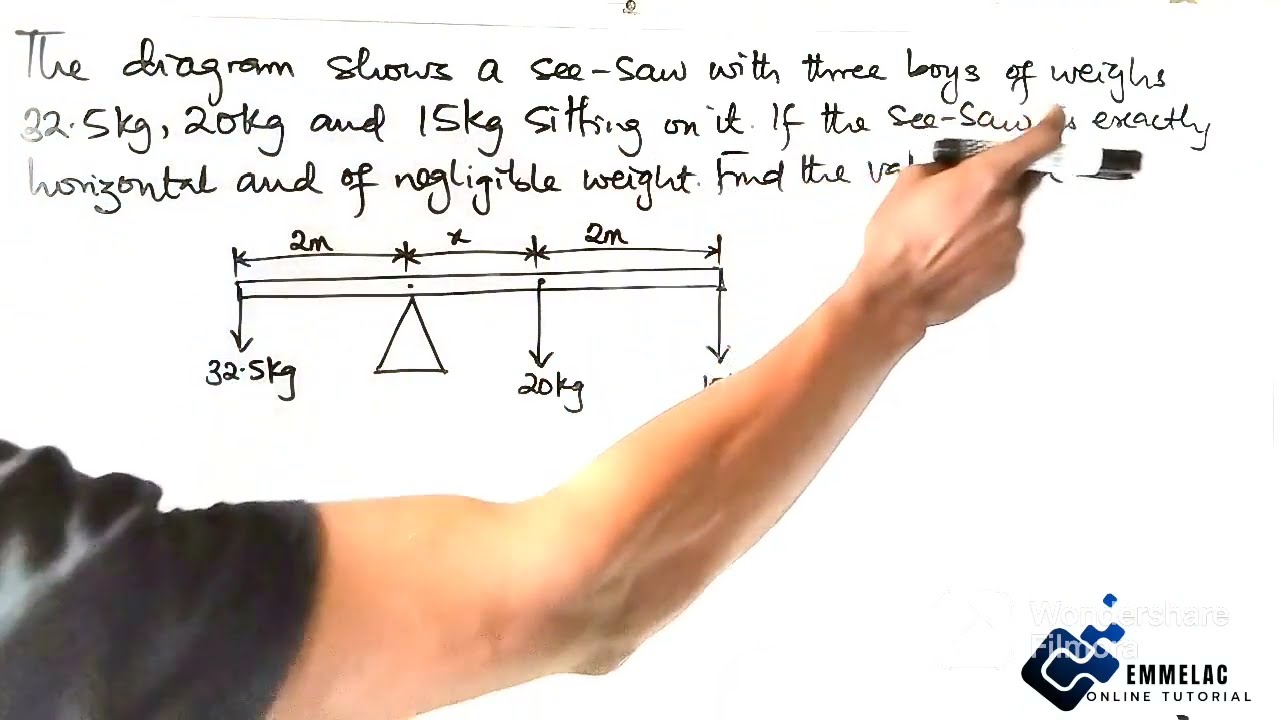 The diagram shows a see-saw with three boys of weighs
32.5kg, 20kg and 15kg sitting on it. If the see-saw is exactly
horizontal and of negligible weight. Find the
2m x 2m
32.5kg 20kg
Wondershare
Filmora
EMMELAC
ONLINE TUTORIAL